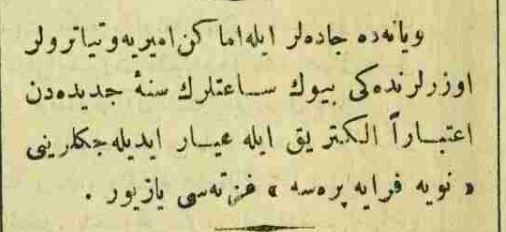 ویانه‌ده جاده‌لر ایله اماکن امیریه و تیاترولر
اوزرلرنده‌کی بیوك ساعتلرك سنۀ جدیده‌دن
اعتباراً الکتریق ایله عیار ایدیله‌جکلرینی
« نویه فرایه پره‌سه » غزته‌سی یازیور .